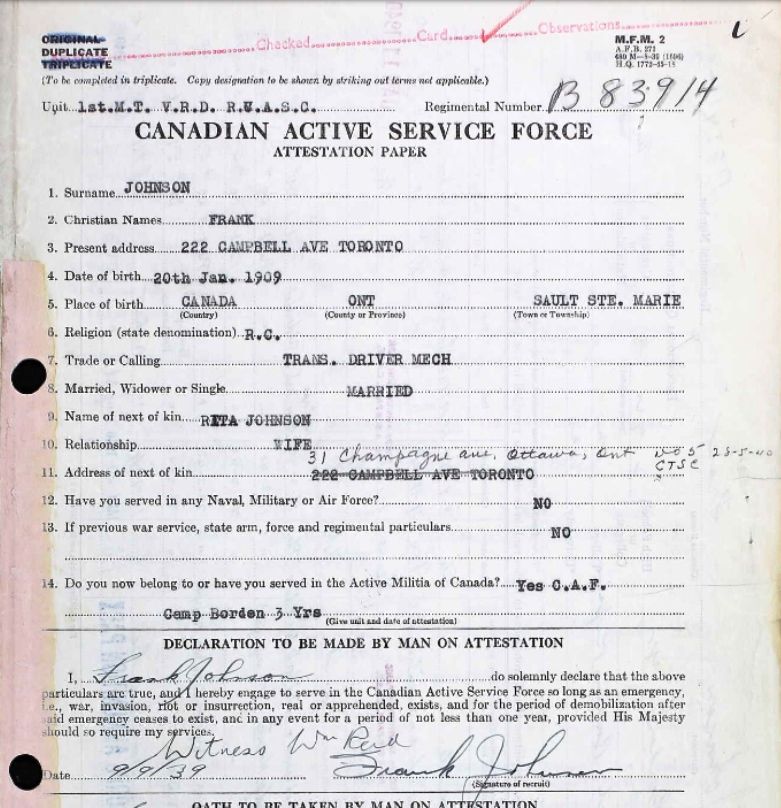 Checked Card Observations
ORIGINAL
DUPLICATE
TRIPLICATE
M.F.M. 2
A.F.B. 271
H.Q. 1772-35-15
(To be completed in triplicate. Copy designation to be shown by striking out terms not applicable.)
Unit 1st.M.T. V.R.D. R.C.A.S.C. Regimental Number B 83914
CANADIAN ACTIVE SERVICE FORCE
ATTESTATION PAPER
1. Surname JOHNSON
2. Christian Names FRANK
3. Present address 222 CAMPBELL AVE TORONTO
4. Date of birth 20th Jan. 1909
5. Place of birth CANADA ONT SAULT STE. MARIE
(Country) (County or Province) (Town or Township)
6. Religion (state denomination) R.C.
7. Trade or Calling TRANS. DRIVER MECH
8. Married, Widower or Single MARRIED
9. Name of next of kin RITA JOHNSON
10. Relationship WIFE
31 Champagne ave, Ottawa, Ont 23-5-40
CTSC
11. Address of next of kin 222 CAMPBELL AVE TORONTO
12. Have you served in any Naval, Military or Air Force? NO
13. If previous war service, state arm, force and regimental particulars NO
14. Do you now belong to or have you served in the Active Militia of Canada? Yes C.A.F.
Camp Borden 3 Yrs
(Give unit and date of attestation)
DECLARATION TO BE MADE BY MAN ON ATTESTATION
I, Frank Johnson do solemnly declare that the above
particulars are true, and I hereby engage to serve in the Canadian Active Service Force so long as an emergency,
i.e., war, invasion, riot or insurrection, real or apprehended, exists, and for the period of demobilization after
said emergency ceases to exist, and in any event for a period of not less than one year, provided His Majesty
should so require my services.
Witness Wm Reid
Date 9/9/39 Frank Johnson
(Signature of recruit)
OATH TO BE TAKEN BY MAN ON ATTESTATION